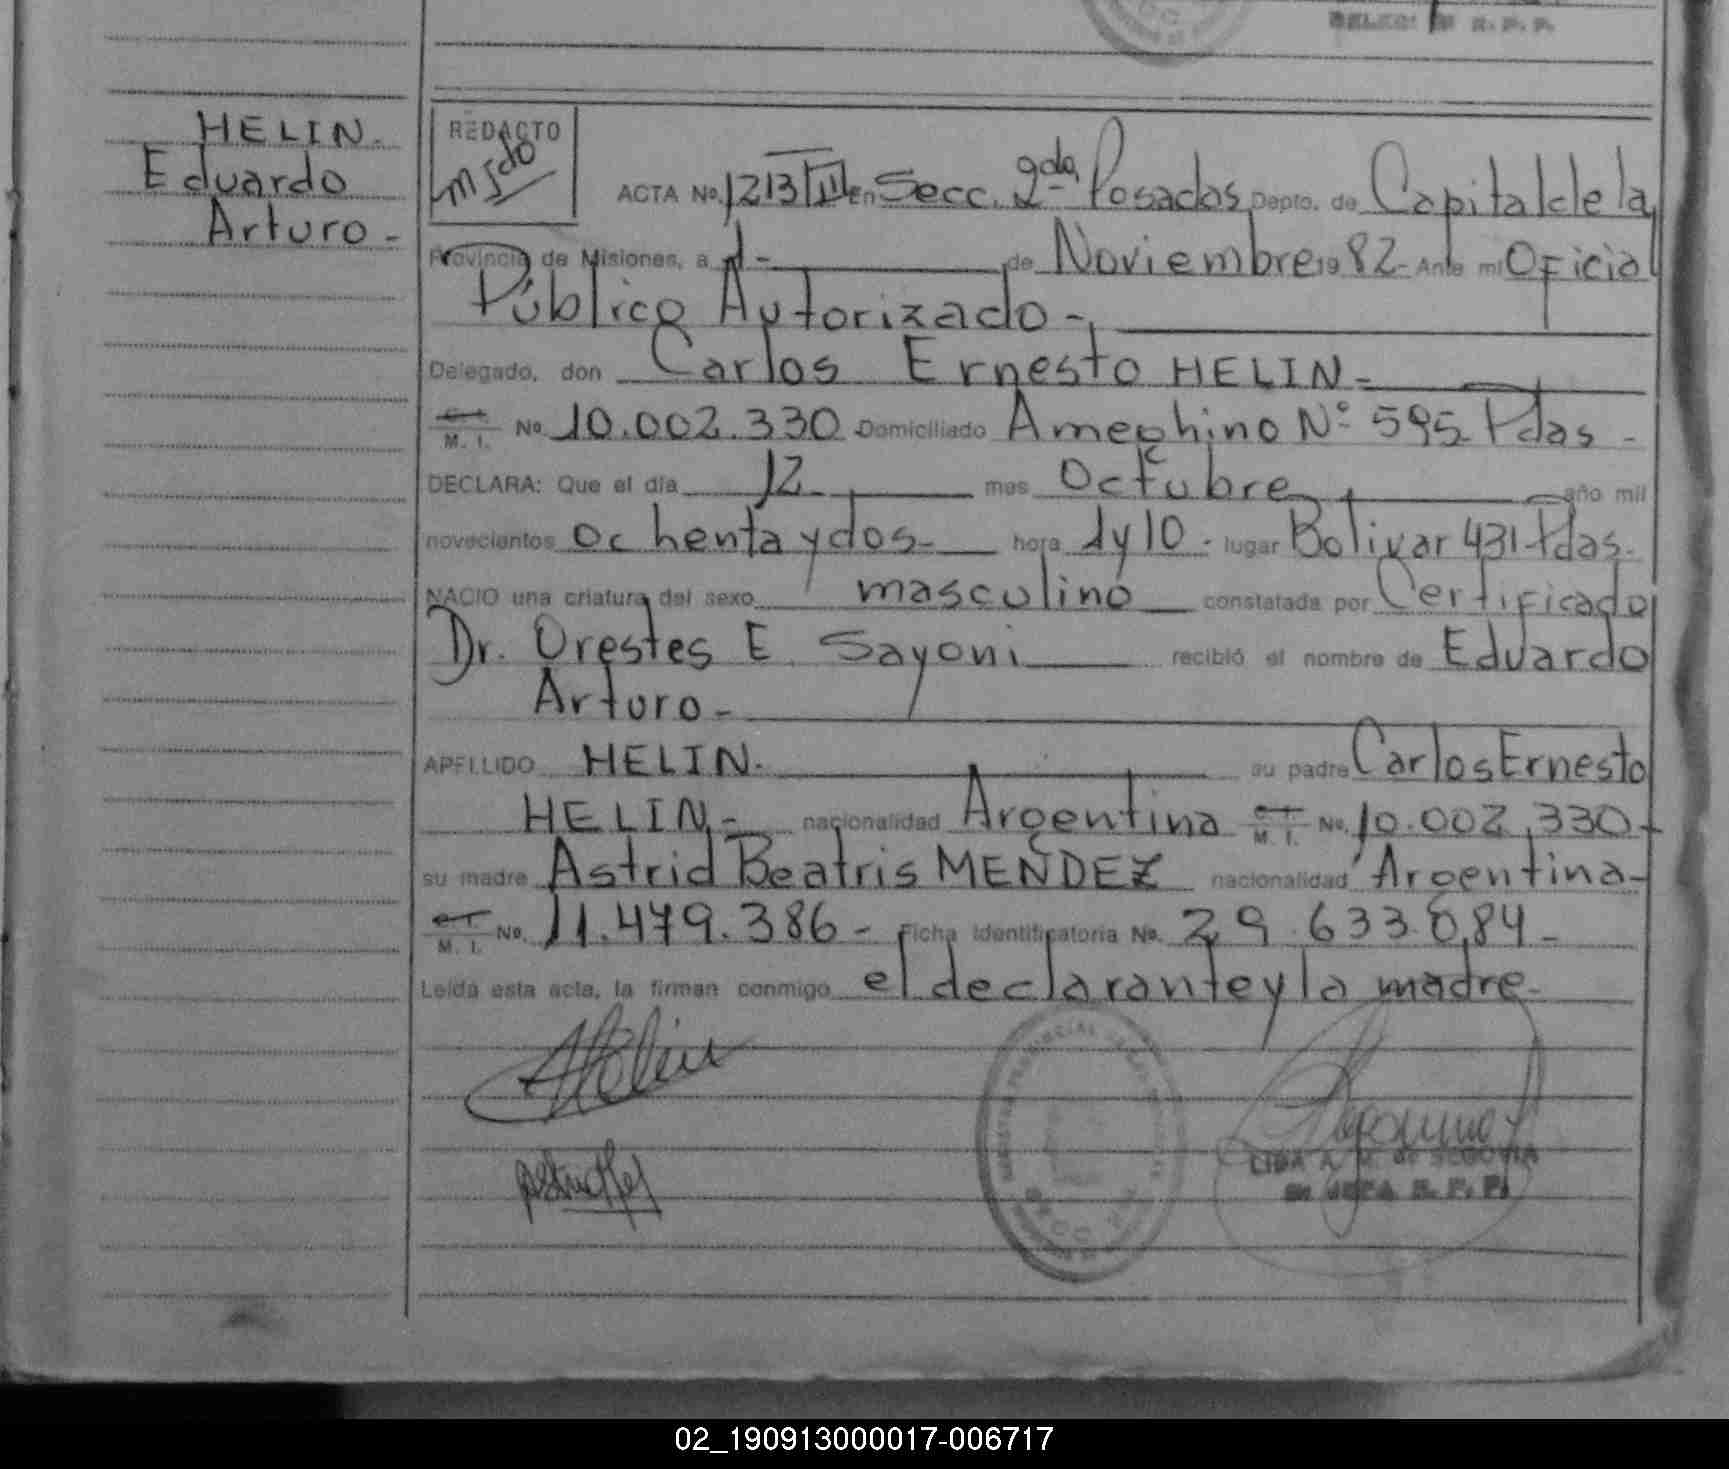 R. P. P.
HELIN.
Eduardo
Arturo -
REDACTO
ACTA No. 1213 III en Secc. 2da, Posadas Depto. de Capital de la
Provincia de Misiones, a 1 - de Noviembre 19 82 - Ante mi Oficial
Público Autorizado -
Delegado, don Carlos Ernesto HELIN -
M. I. No 10.002.330 Domiciliado Ameghino Nº 595 Pdas -
DECLARA: Que el día 12 - mes Octubre año mil
novecientos ochenta y dos - hora 1 y 10 - lugar Bolivar 431 - Pdas.
NACIO una criatura del sexo masculino constatada por Certificado
Dr. Orestes E. Sayoni recibió el nombre de Eduardo
Arturo -
APELLIDO HELIN. su padre Carlos Ernesto
HELIN - nacionalidad Argentina M. I. No. 10.002.330 -
su madre Astrid Beatris MENDEZ nacionalidad Argentina -
M. I. No. 11.479.386 - Ficha identificatoria No. 29.633.084 -
Leída esta acta, la firman conmigo el declarante y la madre -
LIDA A. M. de SEGOVIA
JEFA R. P. P.
02_190913000017-006717